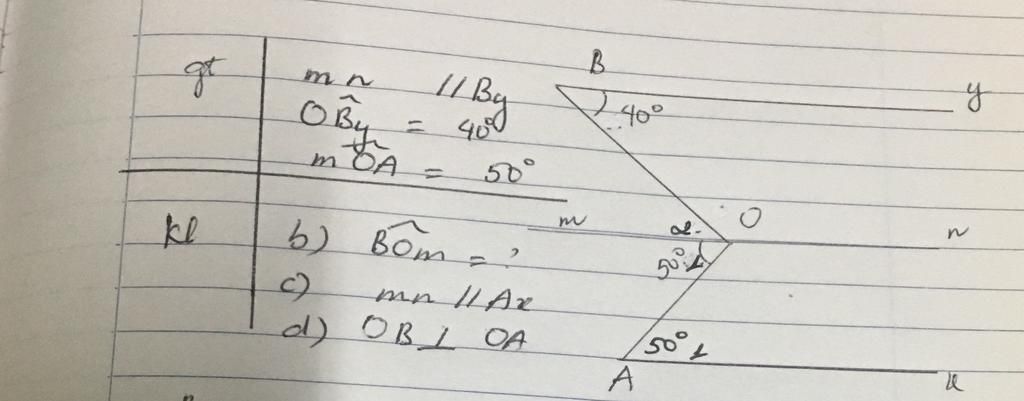 gt
mn // By
OB̂y = 40°
mÔA = 50°
kl
b) BÔm = ?
c) mn // Ax
d) OB ⊥ OA
B
y
40°
m
2
O
n
50° 1
50° 1
A
x